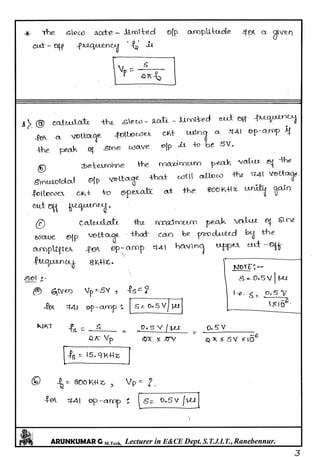 * The slew rate - limited o/p amplitude for a given
cut - off frequency 'fs' is
Vp = S / 2πfs
1) (a) calculate the slew - rate - limited cut off frequency
for a voltage follower ckt using a 741 op-amp if
the peak of sine wave o/p is to be 5V.
(b) Determine the maximum peak value of the
sinusoidal o/p voltage that will allow the 741 voltage
follower ckt to operate at the 800KHz unity gain
cut off frequency.
(c) calculate the maximum peak value of sine
wave o/p voltage that can be produced by the
amplifier for op-amp 741 having upper cut - off
frequency 8KHz.
NOTE:-
S = 0.5V/μs
i.e. S = 0.5 V / 1x10⁻⁶
sol :-
(a) Given Vp = 5V , fs = ?
for 741 op-amp : S = 0.5V/μs
WKT fs = S / 2π Vp = 0.5 V/μs / 2π x 5V = 0.5V / 2π x 5V x 10⁻⁶
fs = 15.9KHz
(b) fs = 800KHz , Vp = ?
for 741 op-amp : S = 0.5V/μs
ARUNKUMAR G M.Tech, Lecturer in E&CE Dept. S.T.J.I.T., Ranebennur.
3